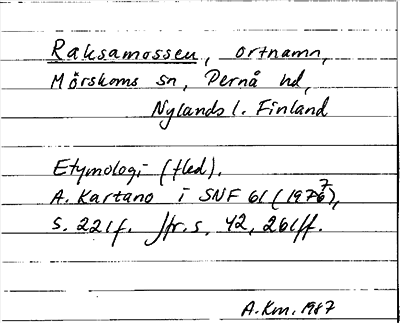 Raksamossen, ortnamn,
Mörskoms sn, Pernå hd,
Nylands l. Finland
Etymologi (fled).
A. Kartano i SNF 61 (1977),
s. 221f. Jfr. s. 42, 261ff.
A.Km. 1987